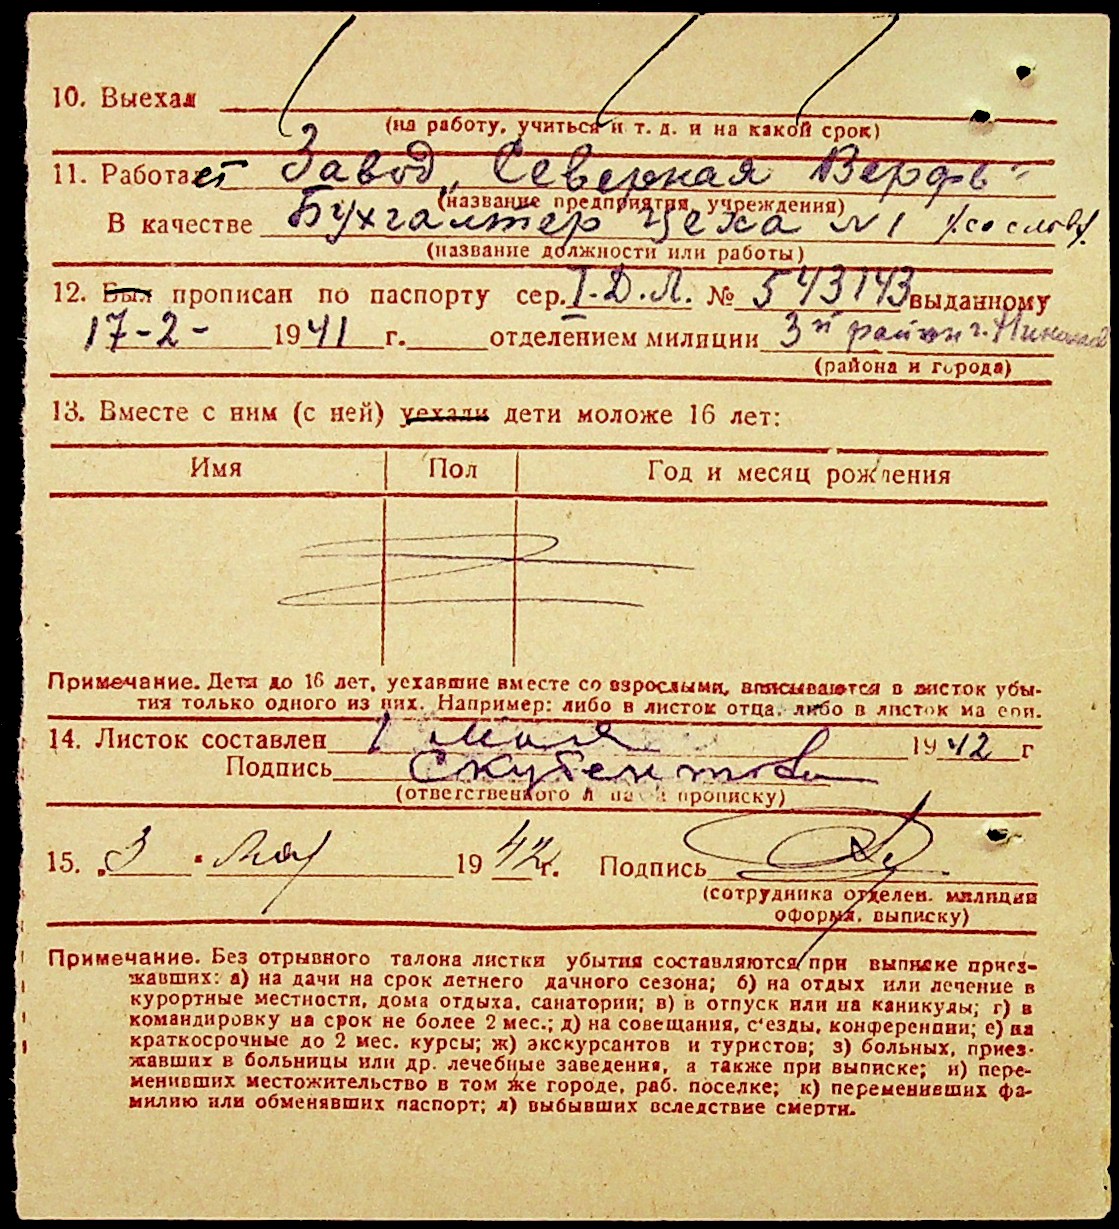 10. Выехал
(на работу, учиться и т. д. и на какой срок)
11. Работает Завод „Северная Верфь"
(название предприятия, учреждения)
В качестве Бухгалтер цеха N 1 /со слов/.
(название должности или работы)
12. Был прописан по паспорту сер. I-Д.Л. № 543143 выданному
17-2- 1941 г. отделением милиции 3й район г.
(района и города)
13. Вместе с ним (с ней) уехали дети моложе 16 лет:
Имя Пол Год и месяц рождения
Примечание. Дети до 16 лет, уехавшие вместе со взрослыми, вписываются в листок убы-
тия только одного из них. Например: либо в листок отца, либо в листок матери.
14. Листок составлен 1 мая 1942 г
Подпись
(ответственного л за прописку)
15. 3 мая 1942г. Подпись
(сотрудника отделен. милиции
оформл. выписку)
Примечание. Без отрывного талона листки убытия составляются при выписке приез-
жавших: а) на дачи на срок летнего дачного сезона; б) на отдых или лечение в
курортные местности, дома отдыха, санатории; в) в отпуск или на каникулы; г) в
командировку на срок не более 2 мес.; д) на совещания, с'езды, конференции; е) на
краткосрочные до 2 мес. курсы; ж) экскурсантов и туристов; з) больных, приез-
жавших в больницы или др. лечебные заведения, а также при выписке; и) пере-
менивших местожительство в том же городе, раб. поселке; к) переменивших фа-
милию или обменявших паспорт; л) выбывших вследствие смерти.